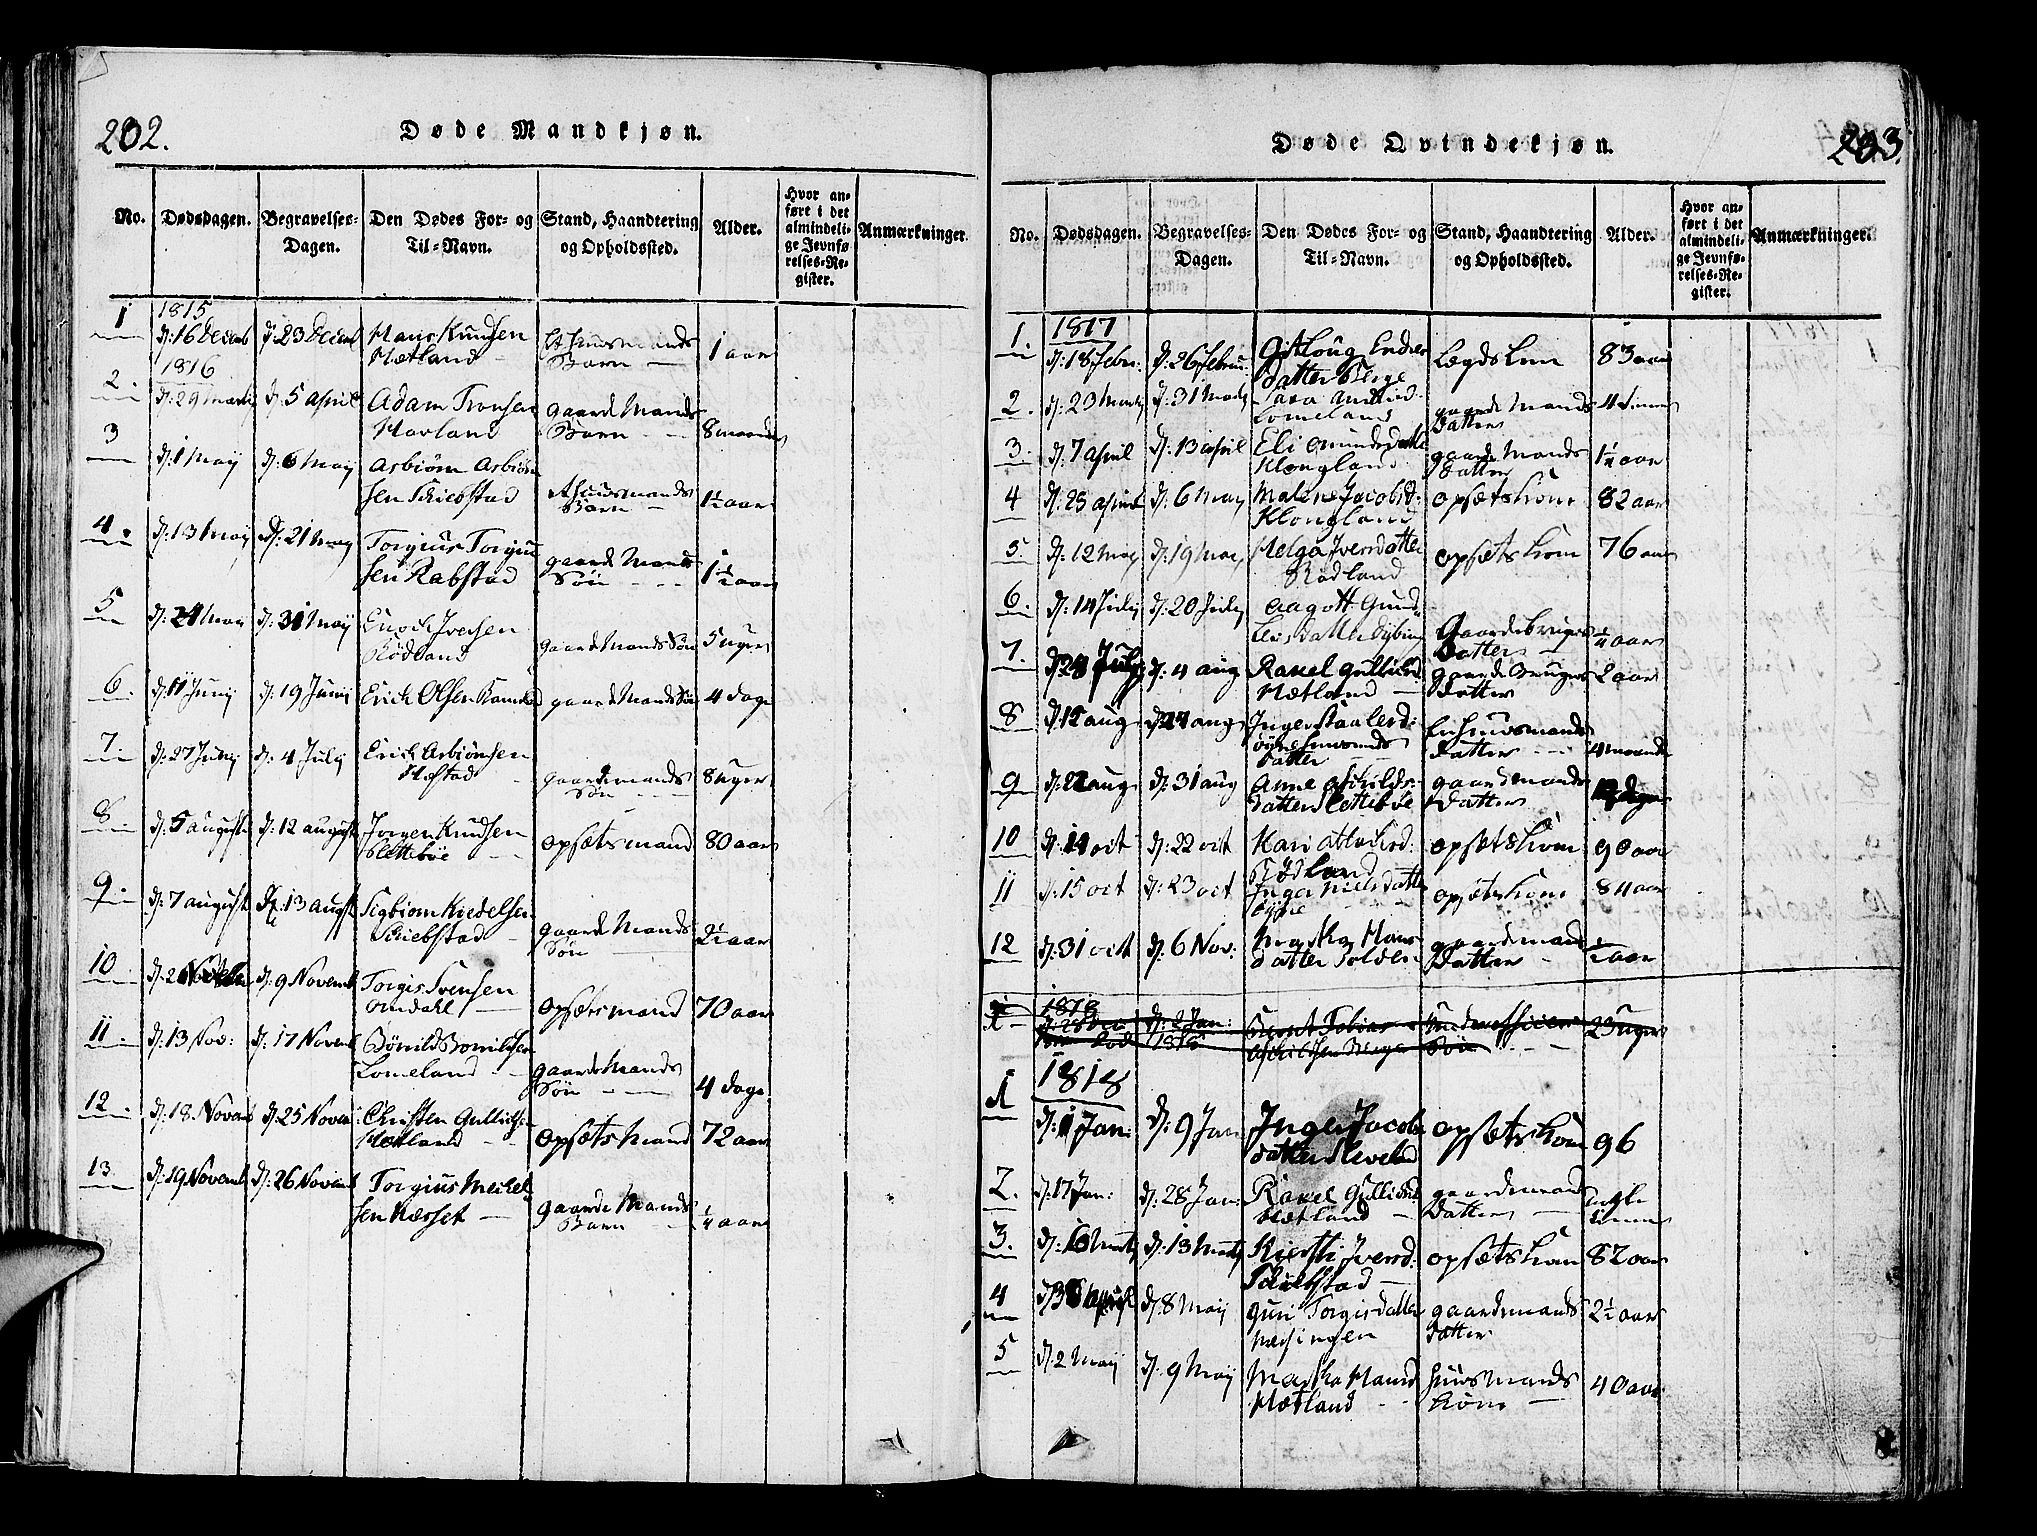 202.
Døde Mandkjøn.
No. Dødsdagen. Begravelses-Dagen. Den Dødes For- og Til-Navn. Stand, Haandtering og Opholdssted. Alder. Hvor anført i det almindelige Jevnførelses-Register. Anmærkninger.
1815
1 d: 16 Decemb d: 23 Decemb Hans Knudsen Mætland Et Huusmands Barn 1 aar
1816
2. d: 29 Martz d: 5 april Adam Tronsen Havland gaardMands Barn 8 maaneder
3 d: 1 May d: 6 May Asbiørn Asbiørnsen Skiebstad Huusmands Barn 1½ aar
4. d: 13 May d: 21 May Torgius Torgiusen Rabstad gaardeMands Søn 1½ aar
5 d: 24 May d: 31 May Enoch Iversen Rødland gaardMands Søn 5 uger
6. d: 11 Juny d: 19 Juny Erich Olsen gaardMands Søn 4 dage
7. d: 27 Juny d: 4 July Erich Asbiørnsen gaardemands Søn 8 uger
8 d: 5 august d: 12 august Jørgen Knudsen Slettebøe opsætsmand 80 aar
9. d: 7 august d: 13 augst Sigbiørn Kiedelsen Skiebstad gaardeMands Søn 2½ aar
10. d: 9 Novemb Torgis Svensen Omdahl opsætsmand 70 aar
11. d: 13 Nov: d: 17 Novemb Bønild Bonildsen Lomeland gaardeMands Søn 4 dage
12. d: 18. Novemb d: 25 Novem Christen Gullichs: Mætland opsætsMand 72 aar
13. d: 19 Novemb d: 26 Novemb Torgius Mickelsen Næsset gaardeMands Barn ¼ aar
203.
Døde Qvindekjøn.
No. Dødsdagen. Begravelses-Dagen. Den Dødes For- og Til-Navn. Stand, Haandtering og Opholdssted. Alder. Hvor anført i det almindelige Jevnførelses-Register. Anmærkninger.
1817
1. d: 18 Febr: d: 26 Febru: Gitloug Endresdatter Berge Lægdslem 83 aar
2. d: 23 Martz d: 31 Martz Sara Lomeland gaardeMands Datter 4
3. d: 7 april d: 13 april Eli Omundsdatter Klongland gaardeMands Datter aar
4 d: 25 april d: 6 May Malene Jacobsd: Klongland opsætskone 82 aar
5. d: 12 May d: 19 May Helga Iversdatter Rødland opsætskone 76 aar
6. d: 14 July d: 20 July Aagott Gundersdatter Gaardebrugers Datter ¼ aar
7. d: 28 July d: 4 aug Rakel Gullichsd Mætland gaardeBrugers Datter 2 aar
8 d: 12 aug d: aug Inger Staalesd: Huusmands Datter En Huusmands Datter 4 maaneder
9 d: 22 aug d: 31 aug Anne Aschildsdatter Slettebøe gaardmands Datter dage
10 d: 14 oct d: 22 oct Kari Atlachsd: Rødland opsætskone 90 aar
11 d: 15 oct d: 23 oct Inger Nielsdatter opsætskone 84 aar
12 d: 31 oct d: 6 Nov: Martha Hansdatter gaardemands Datter ½ aar
1818
1 d: 28 Dec d: 2 Jan: 1818 Bernt Tobias Aschildsen Berge Underofficiers Søn 23 uger
1818
1 d: 1 Jan: d: 9 Jan Inger Jacobsdatter Sleveland opsætskone 96
2. d: 17 Jan: d: 28 Jan: Rakel Gullichsd Mætland gaardemands Datter
3. d: 6 Martz d: 13 Martz Kiersti Iversd: Skiebstad opsætskone 82 aar
4 d: april d: 8 May Guri Torgisdatter gaardemands Datter 2½ aar
5 d: 2 May d: 9 May Martha Hansd Mætland Huusmands kone 40 aar